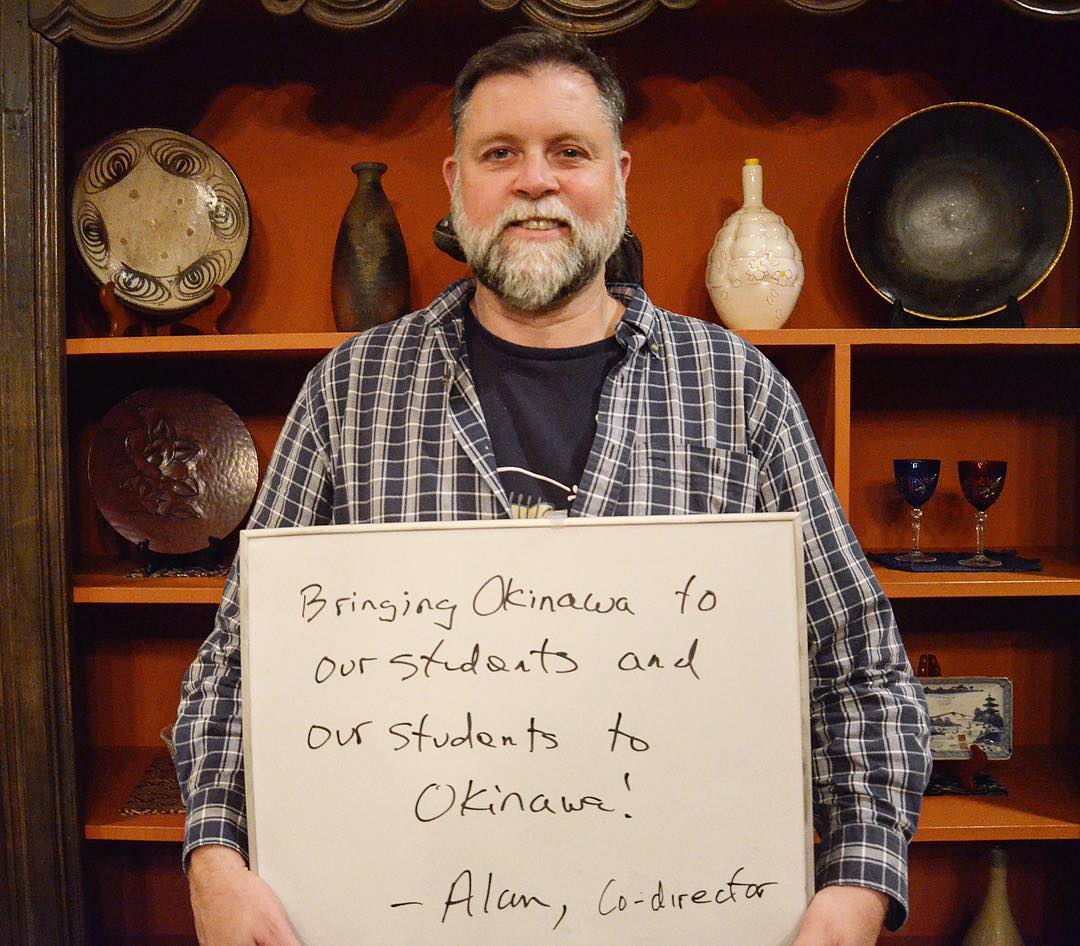 Bringing Okinawa to
our students and
our students to
Okinawa!
- Alan, Co-director